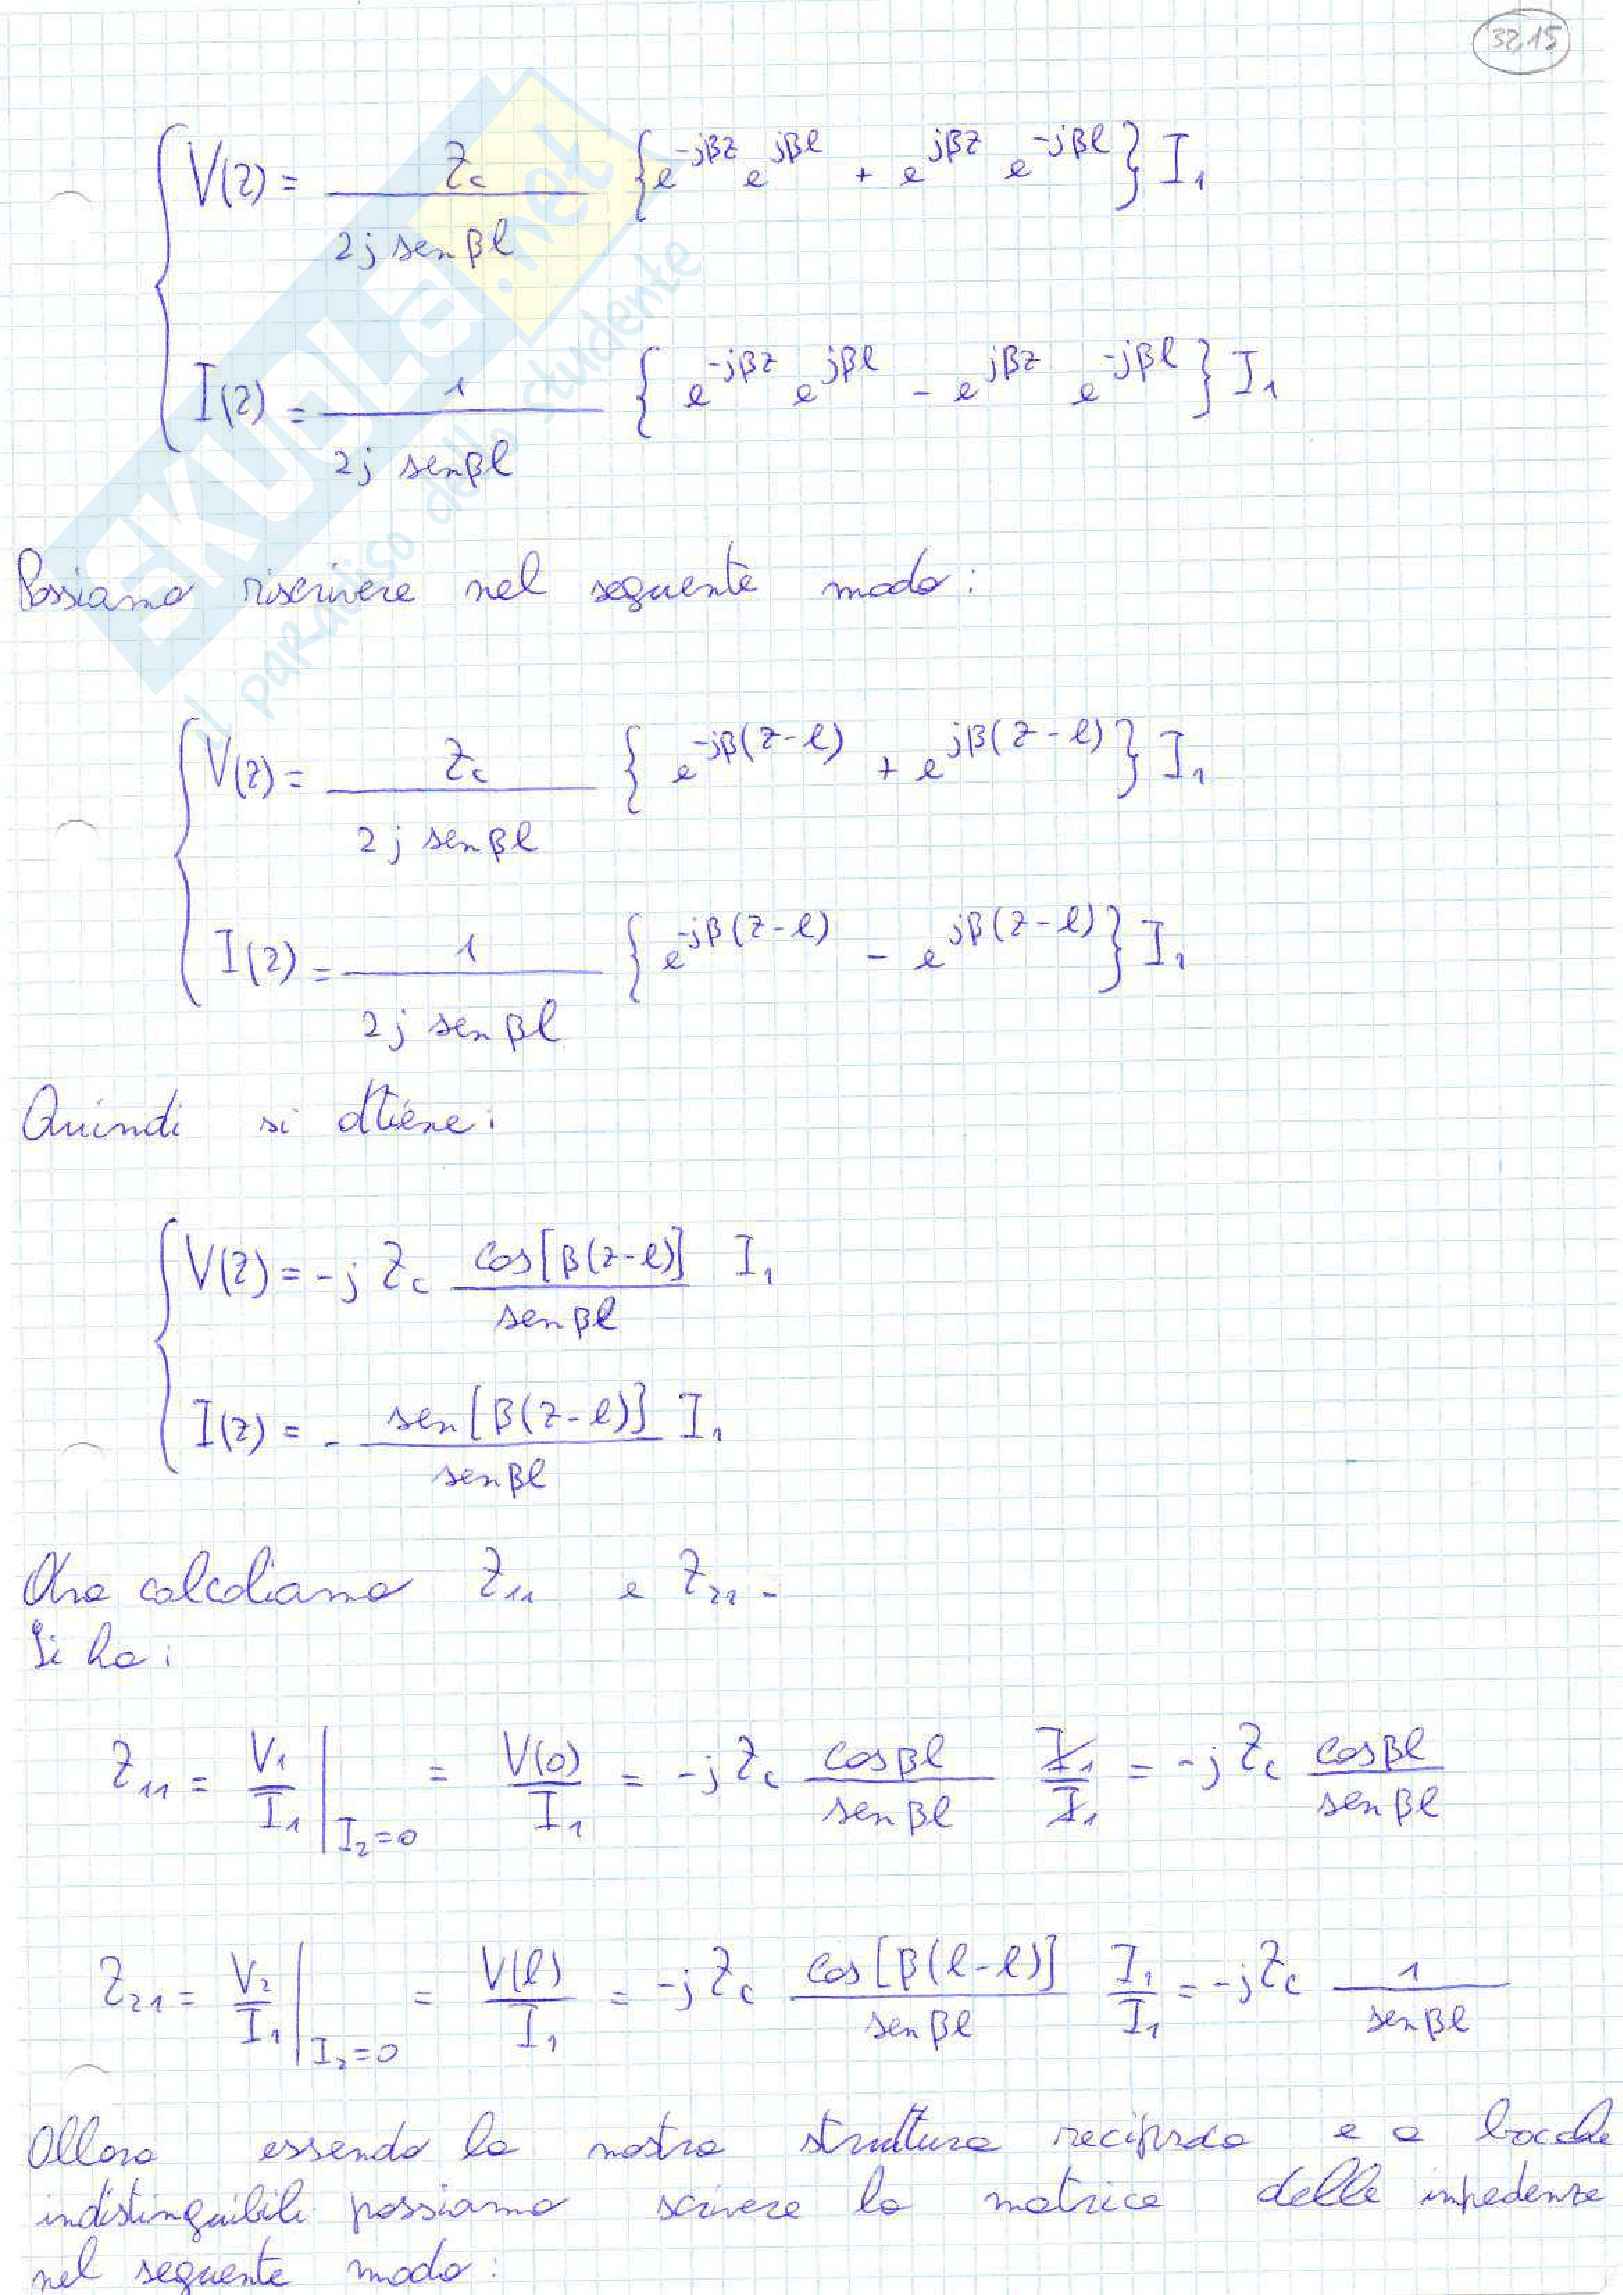 32.15
V(z) = Zc / (2j sen βl) { e^{-jβz} e^{jβl} + e^{jβz} e^{-jβl} } I₁
I(z) = 1 / (2j sen βl) { e^{-jβz} e^{jβl} - e^{jβz} e^{-jβl} } I₁
Possiamo riscrivere nel seguente modo:
V(z) = Zc / (2j sen βl) { e^{-jβ(z-l)} + e^{jβ(z-l)} } I₁
I(z) = 1 / (2j sen βl) { e^{-jβ(z-l)} - e^{jβ(z-l)} } I₁
Quindi si ottiene:
V(z) = -j Zc cos[β(z-l)] / sen βl I₁
I(z) = - sen[β(z-l)] / sen βl I₁
Ora calcoliamo Z₁₁ e Z₂₁.
Si ha:
Z₁₁ = V₁/I₁ |_{I₂=0} = V(0)/I₁ = -j Zc cos βl / sen βl I₁/I₁ = -j Zc cos βl / sen βl
Z₂₁ = V₂/I₁ |_{I₂=0} = V(l)/I₁ = -j Zc cos[β(l-l)] / sen βl I₁/I₁ = -j Zc 1 / sen βl
Allora essendo la nostra struttura reciproca e a bocche
indistinguibili possiamo scrivere la matrice delle impedenze
nel seguente modo:
SKUOLA.net
il paradiso dello studente